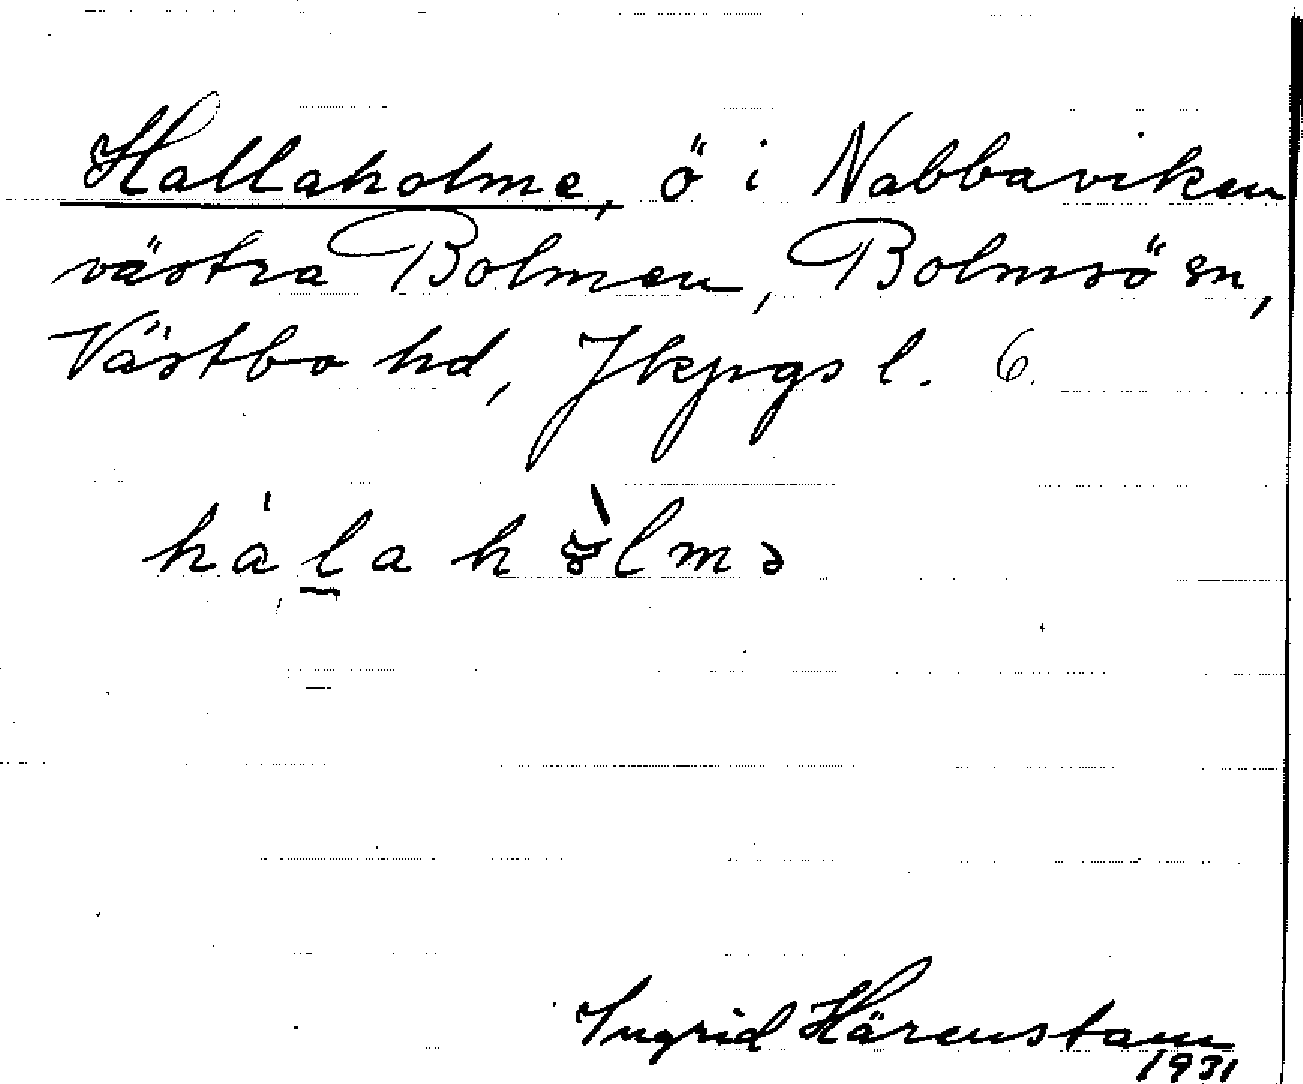 Hallaholme, ö i Nabbaviken
västra Bolmen, Bolmsö sn,
Västbo hd, Jkpgs l. 6.
hálahòlmə
Ingrid Härenstam
1931